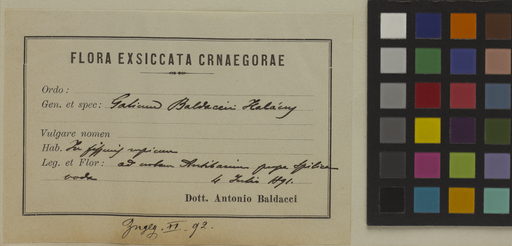 FLORA EXSICCATA CRNAEGORAE
Ordo:
Gen. et spec: Galium Baldaccii Halácsy
Vulgare nomen
Hab. In fissuris rupium
Leg. et Flor: ad urbem Antibarium prope Spilica
voda 4 Julio 1891.
Dott. Antonio Baldacci
XI. 92.